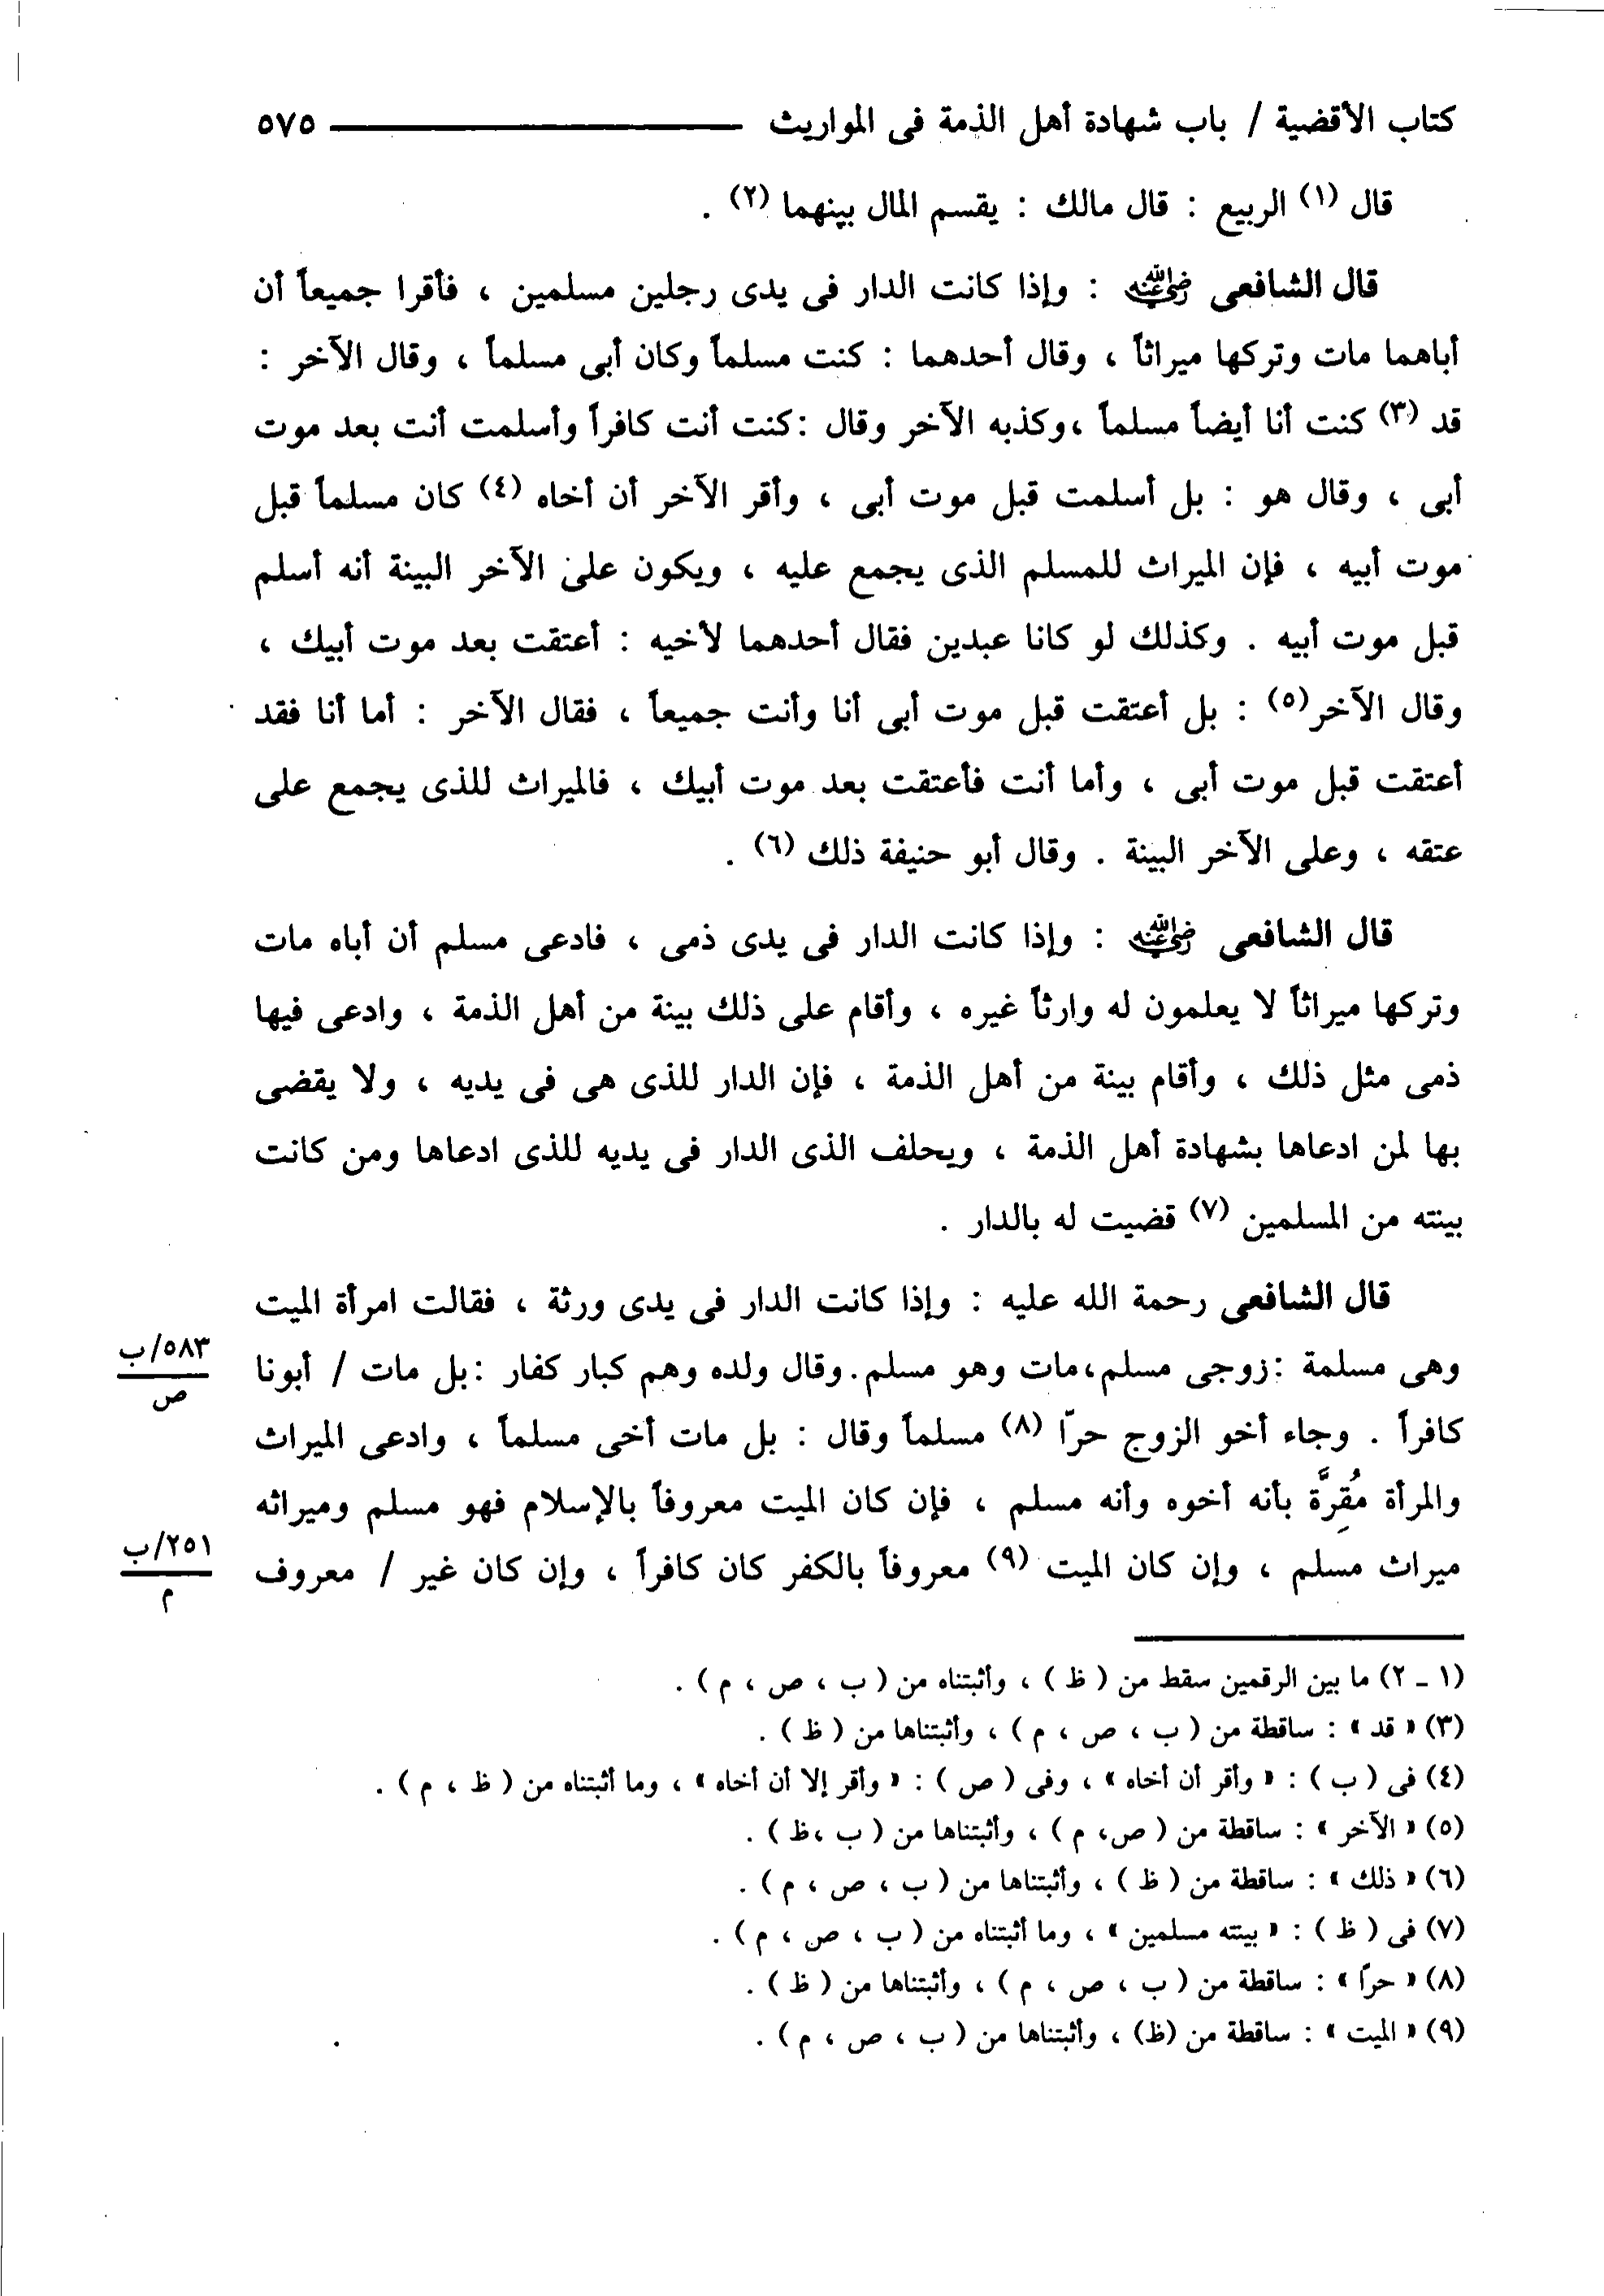 كتاب الأقضية / باب شهادة أهل الذمة فى المواريث ـــــــــ ٥٧٥
قال (١) الربيع : قال مالك : يقسم المال بينهما (٢) .
قال الشافعى رضي الله عنه : وإذا كانت الدار فى يدى رجلين مسلمين ، فأقرا جميعاً أن
أباهما مات وتركها ميراثاً ، وقال أحدهما : كنت مسلماً وكان أبى مسلماً ، وقال الآخر :
قد (٣) كنت أنا أيضاً مسلماً ،وكذبه الآخر وقال :كنت أنت كافراً وأسلمت أنت بعد موت
أبى ، وقال هو : بل أسلمت قبل موت أبى ، وأقر الآخر أن أخاه (٤) كان مسلماً قبل
موت أبيه ، فإن الميراث للمسلم الذى يجمع عليه ، ويكون على الآخر البينة أنه أسلم
قبل موت أبيه . وكذلك لو كانا عبدين فقال أحدهما لأخيه : أعتقت بعد موت أبيك ،
وقال الآخر(٥) : بل أعتقت قبل موت أبى أنا وأنت جميعاً ، فقال الآخر : أما أنا فقد
أعتقت قبل موت أبى ، وأما أنت فأعتقت بعد موت أبيك ، فالميراث للذى يجمع على
عتقه ، وعلى الآخر البينة . وقال أبو حنيفة ذلك (٦) .
قال الشافعى رضي الله عنه : وإذا كانت الدار فى يدى ذمى ، فادعى مسلم أن أباه مات
وتركها ميراثاً لا يعلمون له وارثاً غيره ، وأقام على ذلك بينة من أهل الذمة ، وادعى فيها
ذمى مثل ذلك ، وأقام بينة من أهل الذمة ، فإن الدار للذى هى فى يديه ، ولا يقضى
بها لمن ادعاها بشهادة أهل الذمة ، ويحلف الذى الدار فى يديه للذى ادعاها ومن كانت
بينته من المسلمين (٧) قضيت له بالدار .
قال الشافعى رحمة الله عليه : وإذا كانت الدار فى يدى ورثة ، فقالت امرأة الميت
وهى مسلمة :زوجى مسلم،مات وهو مسلم.وقال ولده وهم كبار كفار :بل مات / أبونا
٥٨٣/ب
ص
كافراً . وجاء أخو الزوج حرّا (٨) مسلماً وقال : بل مات أخى مسلماً ، وادعى الميراث
والمرأة مُقِرَّة بأنه أخوه وأنه مسلم ، فإن كان الميت معروفاً بالإسلام فهو مسلم وميراثه
ميراث مسلم ، وإن كان الميت (٩) معروفاً بالكفر كان كافراً ، وإن كان غير / معروف
٢٥١/ب
م
(١ - ٢) ما بين الرقمين سقط من ( ظ ) ، وأثبتناه من ( ب ، ص ، م ) .
(٣) « قد » : ساقطة من ( ب ، ص ، م ) ، وأثبتناها من ( ظ ) .
(٤) فى ( ب ) : « وأقر أن أخاه » ، وفى ( ص ) : « وأقر إلا أن أخاه » ، وما أثبتناه من ( ظ ، م ) .
(٥) « الآخر » : ساقطة من ( ص، م ) ، وأثبتناها من ( ب ،ظ ) .
(٦) « ذلك » : ساقطة من ( ظ ) ، وأثبتناها من ( ب ، ص ، م ) .
(٧) فى ( ظ ) : « بينته مسلمين » ، وما أثبتناه من ( ب ، ص ، م ) .
(٨) « حرًا » : ساقطة من ( ب ، ص ، م ) ، وأثبتناها من ( ظ ) .
(٩) « الميت » : ساقطة من (ظ) ، وأثبتناها من ( ب ، ص ، م ) .